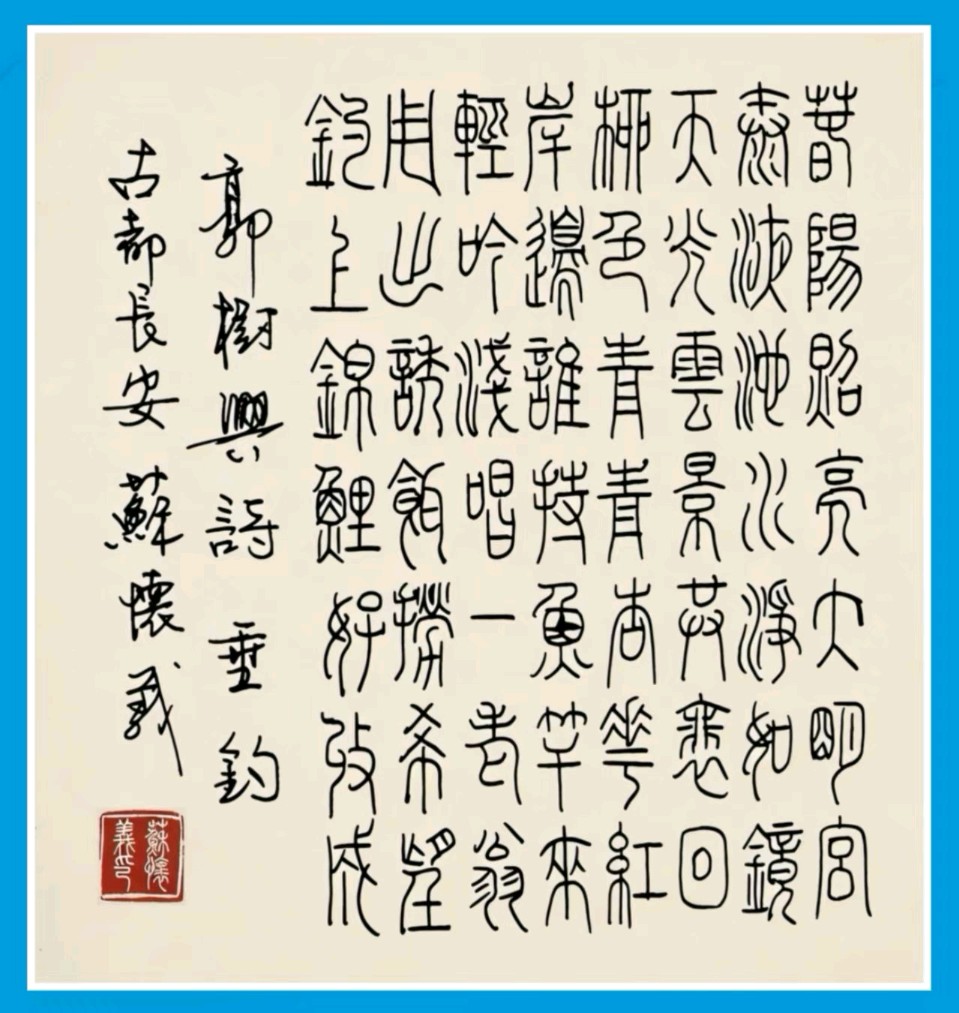 春陽照亮大明宮
泰液池水淨如鏡
天光雲景共裵回
柳色青青杏花紅
岸邊誰持魚竿來
輕吟淺唱一老翁
甩出誘餌撈希望
釣上錦鯉好收成
郭樹興詩 垂釣
古都長安 蘇懷義
蘇懷義印